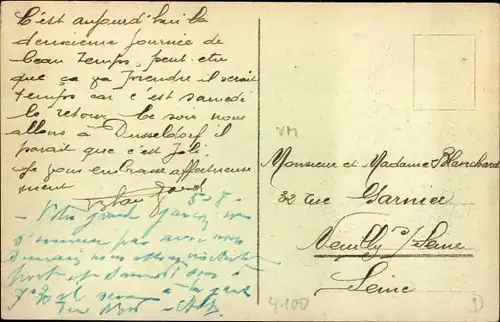 C'est aujourd'hui la
deuxieme journée de
beau temps, peut etre
que ça va prendre il serait
temps car c'est samedi
le retour. Ce soir nous
allons à Dusseldorf il
parait que c'est Joli
Je vous embrasse affectueuse
ment
5-8-
- Votre grand garçon ne
s'ennuie pas avec nous
demain nous
et samedi
à la gare
du Nord -
VM
Monsieur et Madame Blanchard
32 rue Garnier
Neuilly s/Seine
Seine
4-100
D